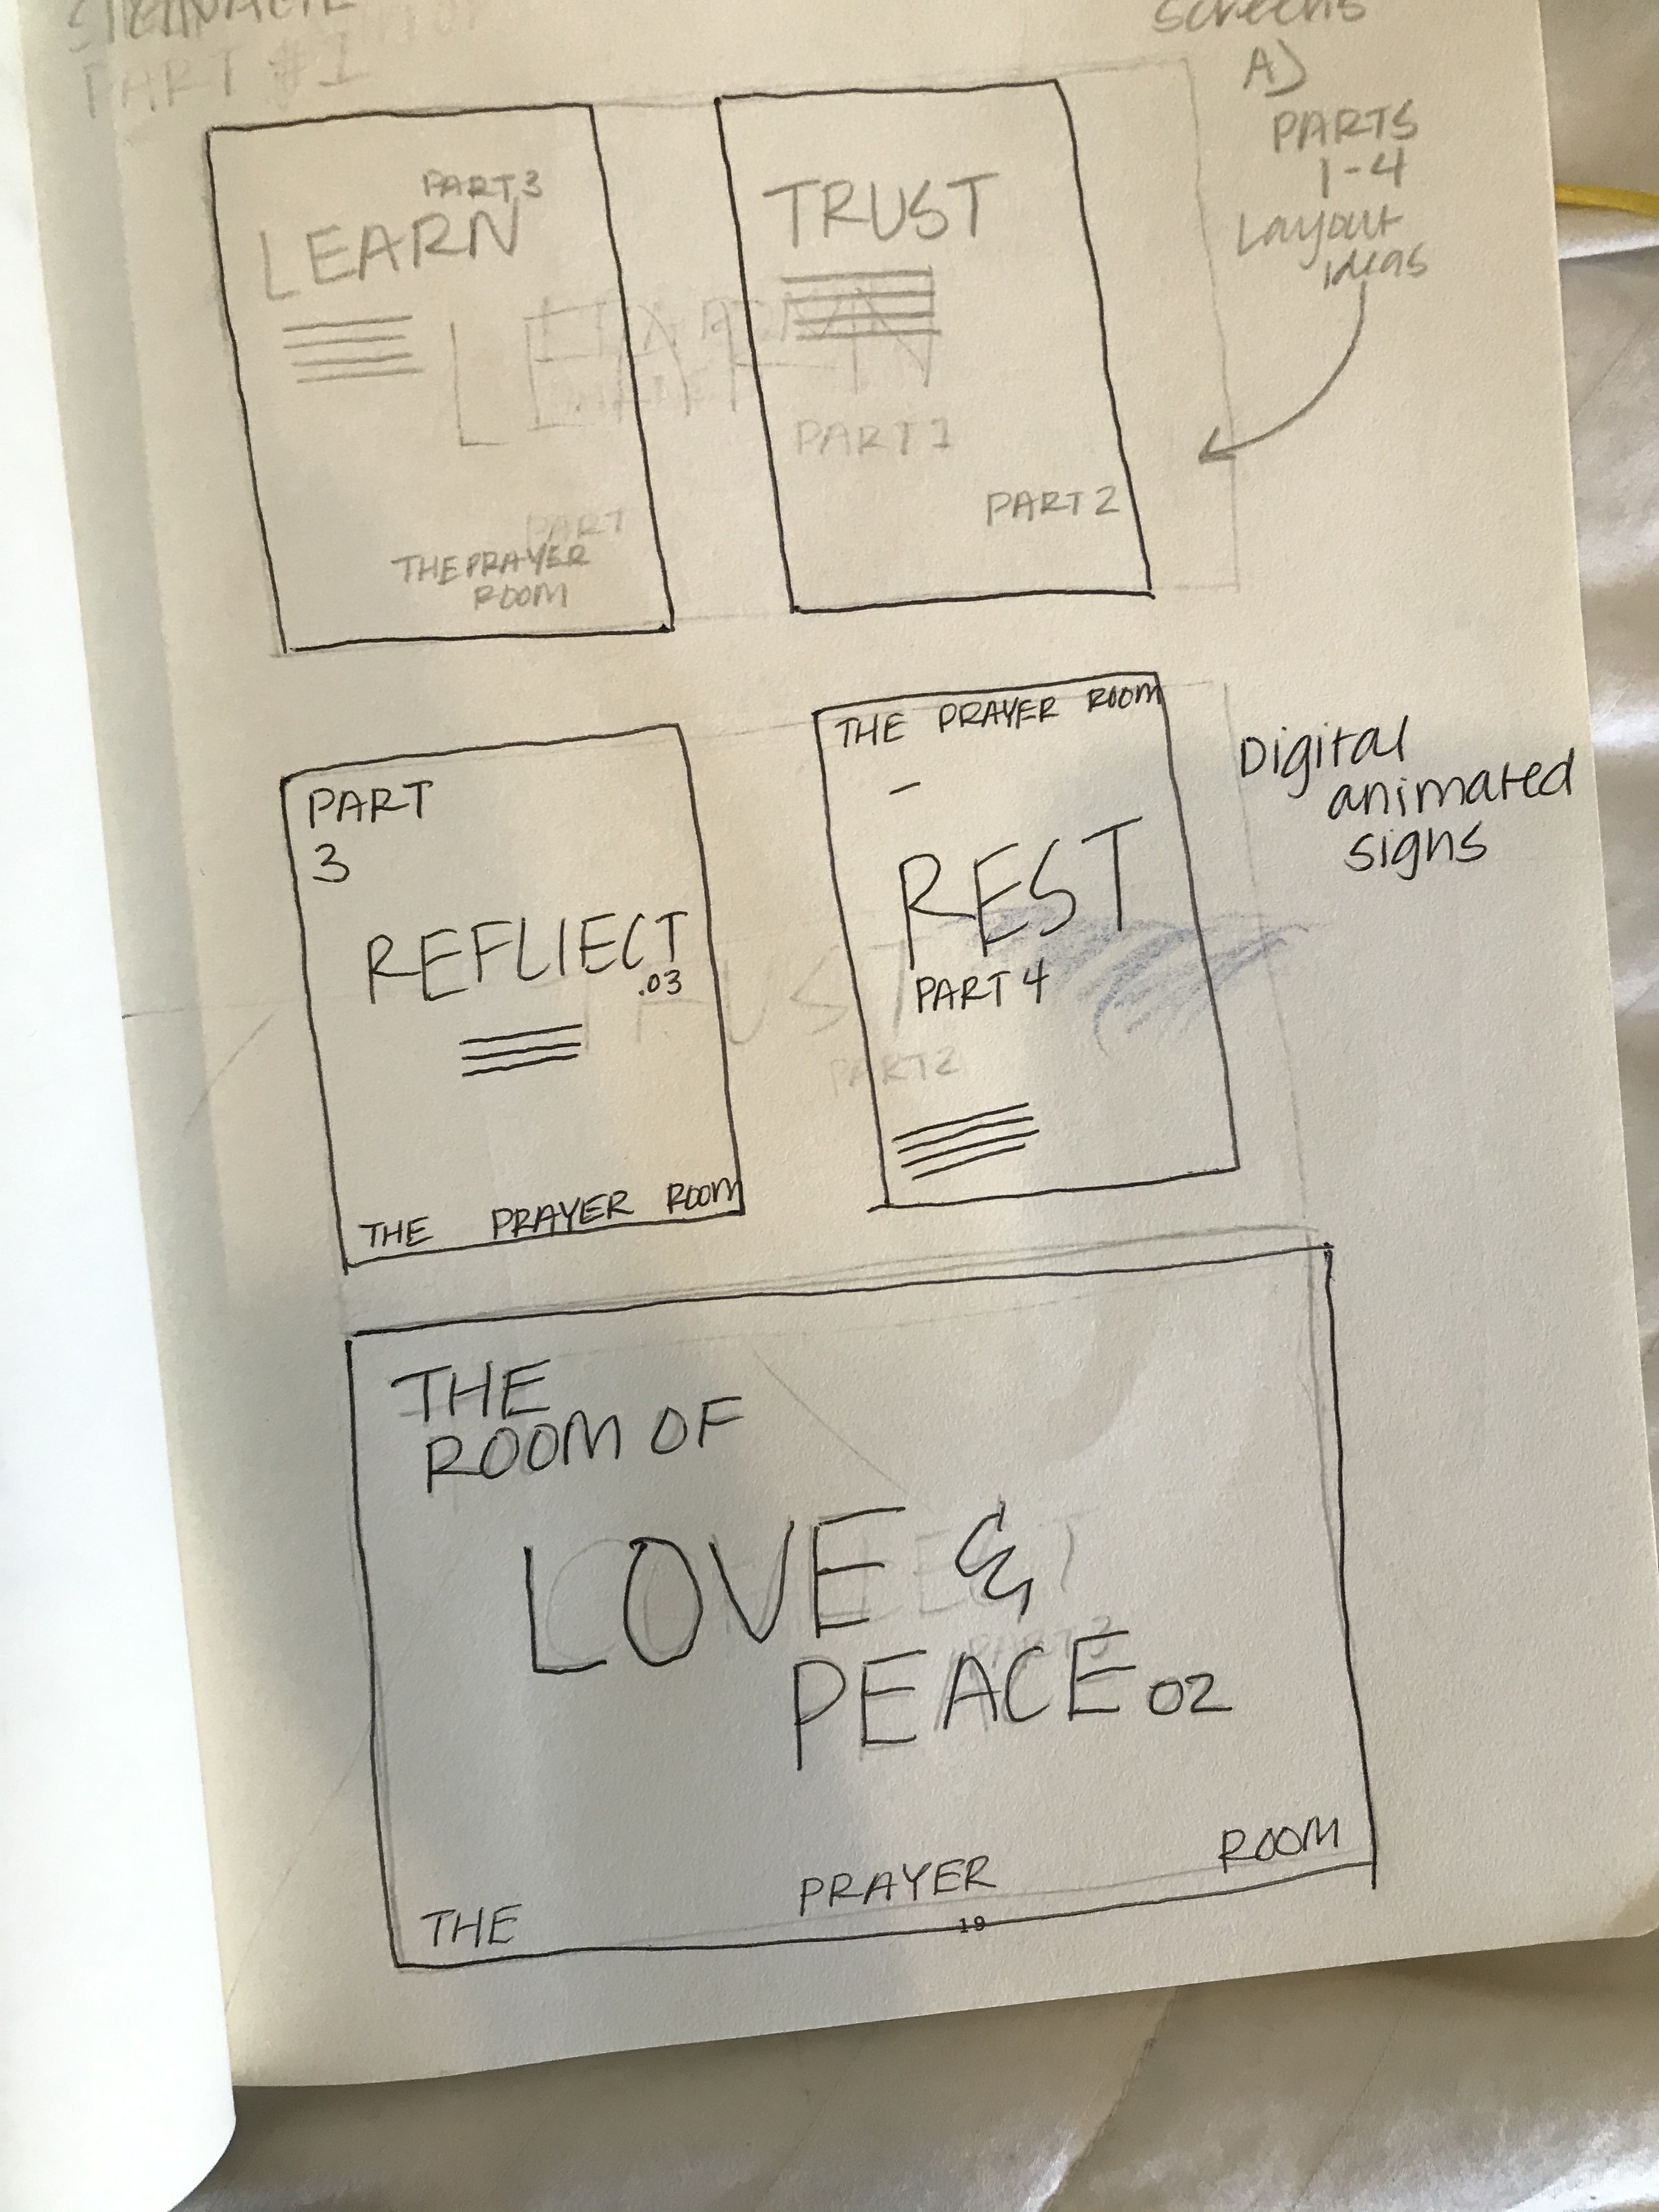 PART #1
screens
A)
PARTS
1-4
Layout
ideas
PART 3
LEARN
THE PRAYER
ROOM
PART
LEARN
TRUST
PART 1
PART 2
PART
3
REFLECT
.03
THE PRAYER ROOM
THE PRAYER ROOM
–
REST
PART 4
Digital
animated
signs
TRUST
PART 2
THE
ROOM OF
LOVE &
PEACE 02
THE PRAYER ROOM
19